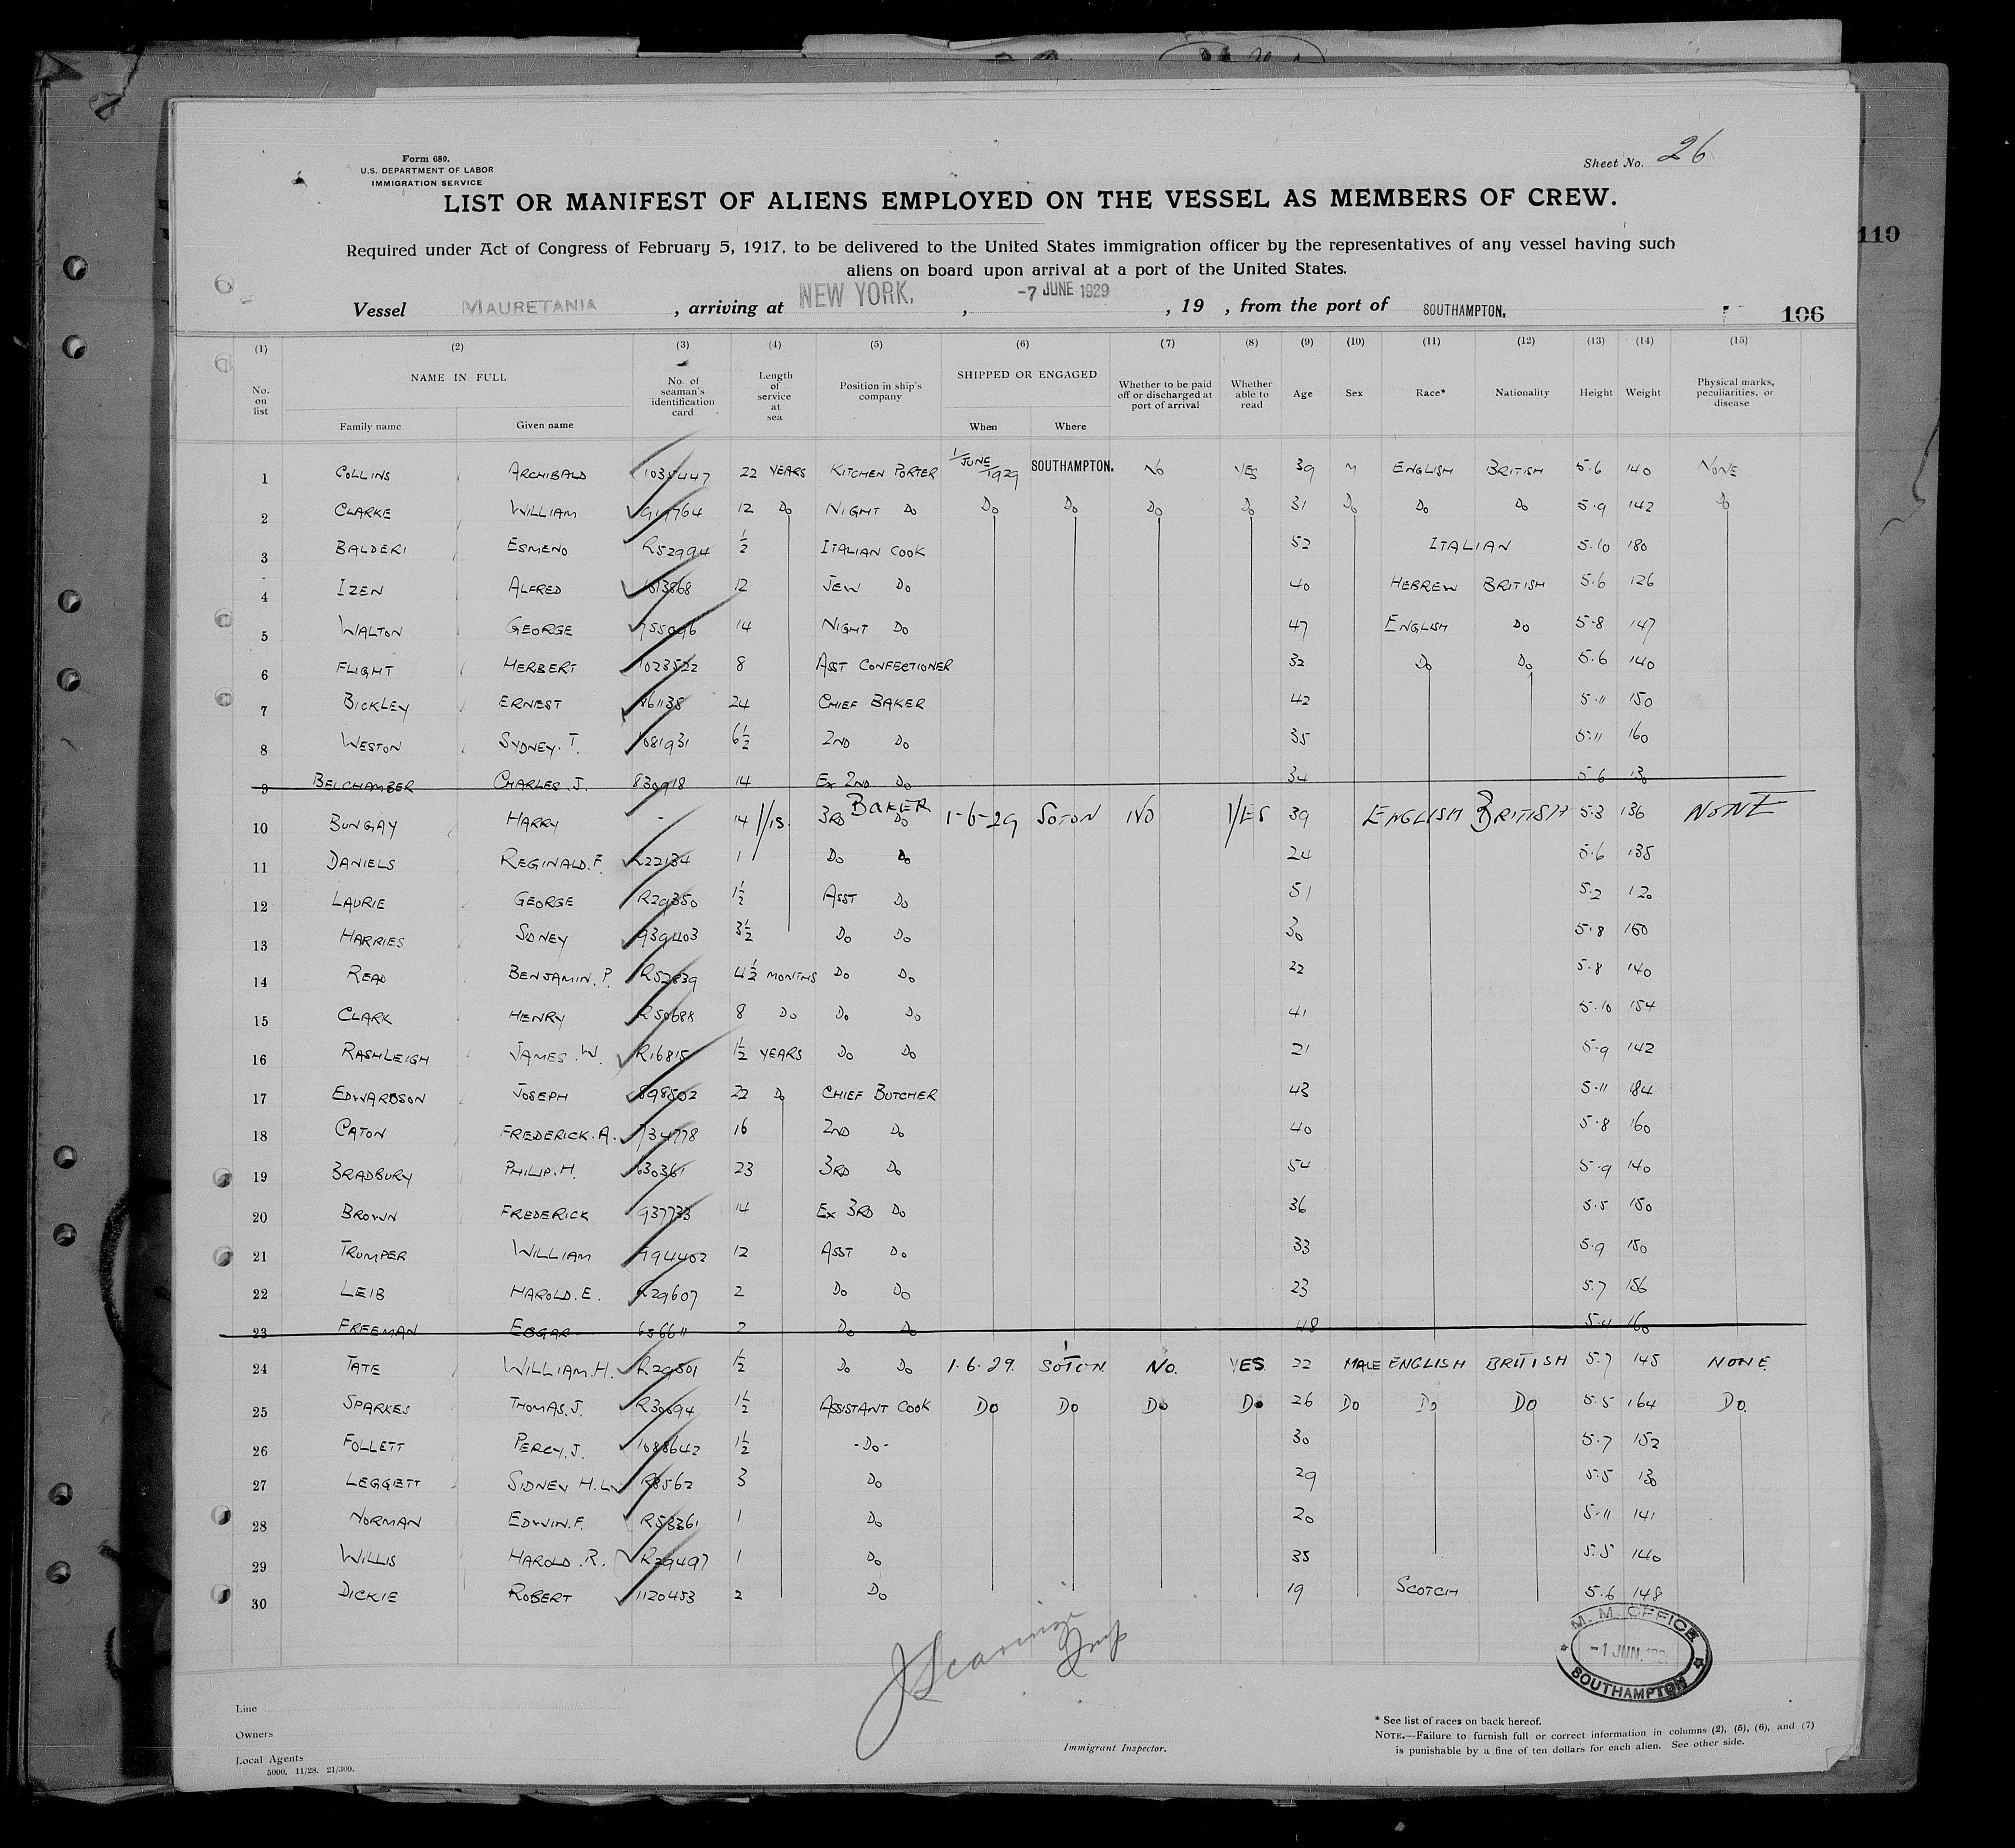 Form 680.
U.S. DEPARTMENT OF LABOR
IMMIGRATION SERVICE
Sheet No. 26
LIST OR MANIFEST OF ALIENS EMPLOYED ON THE VESSEL AS MEMBERS OF CREW.
Required under Act of Congress of February 5, 1917, to be delivered to the United States immigration officer by the representatives of any vessel having such
aliens on board upon arrival at a port of the United States.
110
Vessel MAURETANIA, arriving at NEW YORK., -7 JUNE 1929, 19 , from the port of SOUTHAMPTON. 106
(1) (2) (3) (4) (5) (6) (7) (8) (9) (10) (11) (12) (13) (14) (15)
No. on list NAME IN FULL Family name Given name No. of seaman's identification card Length of service at sea Position in ship's company SHIPPED OR ENGAGED When Where Whether to be paid off or discharged at port of arrival Whether able to read Age Sex Race* Nationality Height Weight Physical marks, peculiarities, or disease
1 COLLINS ARCHIBALD 1035447 22 YEARS KITCHEN PORTER 1/JUNE/1929 SOUTHAMPTON. NO YES 39 M ENGLISH BRITISH 5.6 140 NONE
2 CLARKE WILLIAM 12 Do NIGHT Do Do Do Do Do 31 Do Do Do 5.9 142 Do
3 BALDERI ESMENO R52994 ½ ITALIAN COOK 52 ITALIAN 5.10 180
4 IZEN ALFRED 12 JEW Do 40 HEBREW BRITISH 5.6 126
5 WALTON GEORGE 14 NIGHT Do 47 ENGLISH Do 5.8 147
6 FLIGHT HERBERT 1023522 8 ASST CONFECTIONER 32 Do Do 5.6 140
7 BICKLEY ERNEST 24 CHIEF BAKER 42 5.11 150
8 WESTON SYDNEY. T. 1081931 6½ 2ND Do 35 5.11 160
9 BELCHAMBER CHARLES. J. 830918 14 EX 2ND Do 34 5.6 130
10 BUNGAY HARRY - 14 3RD BAKER Do 1-6-29 SOTON NO YES 39 ENGLISH BRITISH 5.3 136 NONE
11 DANIELS REGINALD. F. R22134 1 Do Do 24 5.6 135
12 LAURIE GEORGE R29350 1½ ASST Do 51 5.2 120
13 HARRIES SIDNEY 939403 3½ Do Do 30 5.8 150
14 READ BENJAMIN. P. R52839 4½ MONTHS Do Do 22 5.8 140
15 CLARK HENRY 8 Do Do Do 41 5.10 154
16 RASHLEIGH JAMES. W. R16815 1½ YEARS Do Do 21 5.9 142
17 EDWARDSON JOSEPH 898502 22 Do CHIEF BUTCHER 43 5.11 184
18 CATON FREDERICK. A. 734778 16 2ND Do 40 5.8 160
19 BRADBURY PHILIP. H. 630361 23 3RD Do 54 5.9 140
20 BROWN FREDERICK 937733 14 EX 3RD Do 36 5.5 150
21 TRUMPER WILLIAM 12 ASST Do 33 5.9 150
22 LEIB HAROLD. E. R29607 2 Do Do 23 5.7 156
23 FREEMAN EDGAR 656611 2 Do Do 48 5.4 160
24 TATE WILLIAM. H. R29501 1½ Do Do 1.6.29. SOTON NO. YES 22 MALE ENGLISH BRITISH 5.7 145 NONE
25 SPARKES THOMAS. J. R30694 1½ ASSISTANT COOK Do Do Do Do 26 Do Do Do 5.5 164 Do.
26 FOLLETT PERCY. J. 1088642 1½ -Do- 30 5.7 152
27 LEGGETT SIDNEY H.L. R8562 3 Do 29 5.5 130
28 NORMAN EDWIN. F. R53361 1 Do 20 5.11 141
29 WILLIS HAROLD. R. R29497 1 Do 35 5.5 140
30 DICKIE ROBERT 1120453 2 Do 19 SCOTCH 5.6 148
M. M. OFFICE
-1 JUN. 192
SOUTHAMPTON
Line
Owners
Local Agents
5000. 11/28. 21/309.
Immigrant Inspector.
* See list of races on back hereof.
NOTE.—Failure to furnish full or correct information in columns (2), (5), (6), and (7)
is punishable by a fine of ten dollars for each alien. See other side.